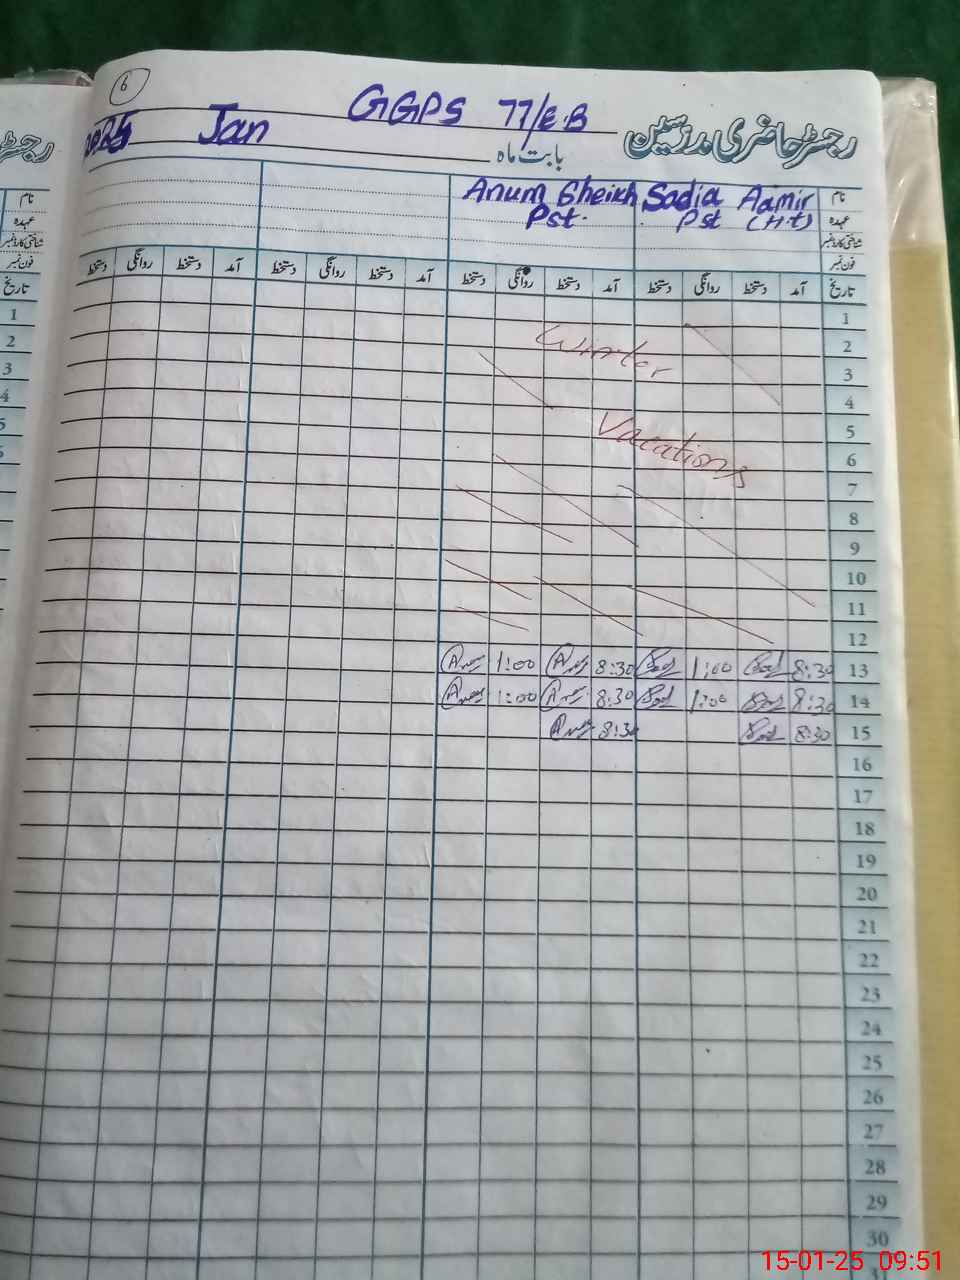 6
GGPS 77/E.B
2025 Jan
رجسٹر حاضری مدرسین
بابت ماہ
نام Sadia Aamir Anum Sheikh
عہدہ Pst (H.t) Pst.
شناختی کارڈ نمبر
فون نمبر
تاریخ آمد دستخط روانگی دستخط آمد دستخط روانگی دستخط آمد دستخط روانگی دستخط آمد دستخط روانگی دستخط
1
2
3
4
5
6
7
8
9
10
11
12
Winter
Vacations
13 8:30 1:00 8:30 1:00
14 8:30 1:00 8:30 1:00
15 8:30 8:30
16
17
18
19
20
21
22
23
24
25
26
27
28
29
30
31
نام
عہدہ
شناختی کارڈ نمبر
فون نمبر
تاریخ
1
2
3
4
5
6
15-01-25 09:51